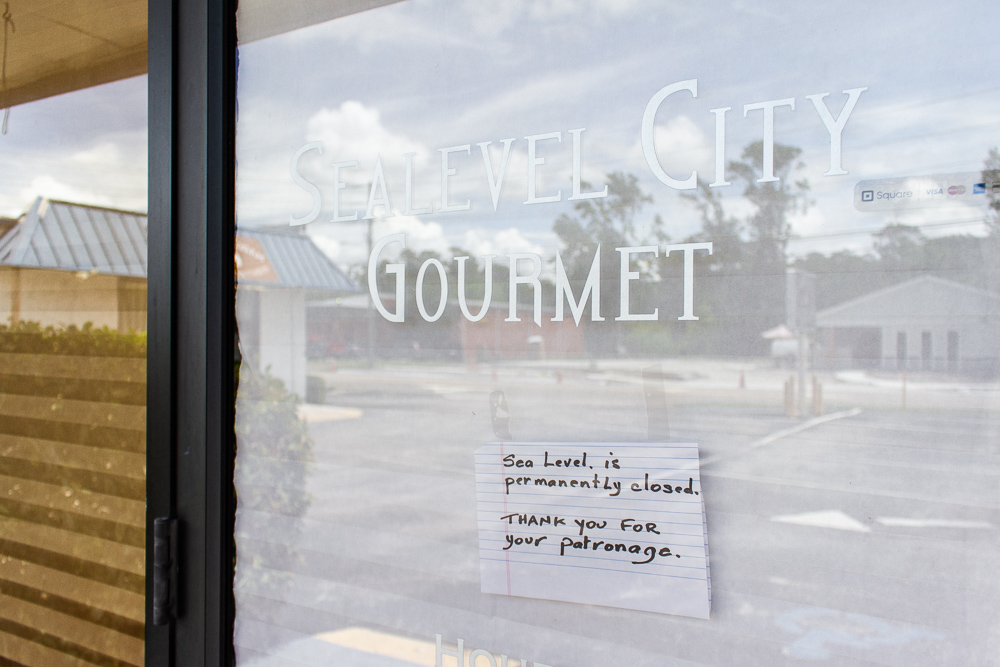 Sealevel City
Gourmet
Square VISA
Sea Level. is
permanently closed.
THANK you FOR
your patronage.